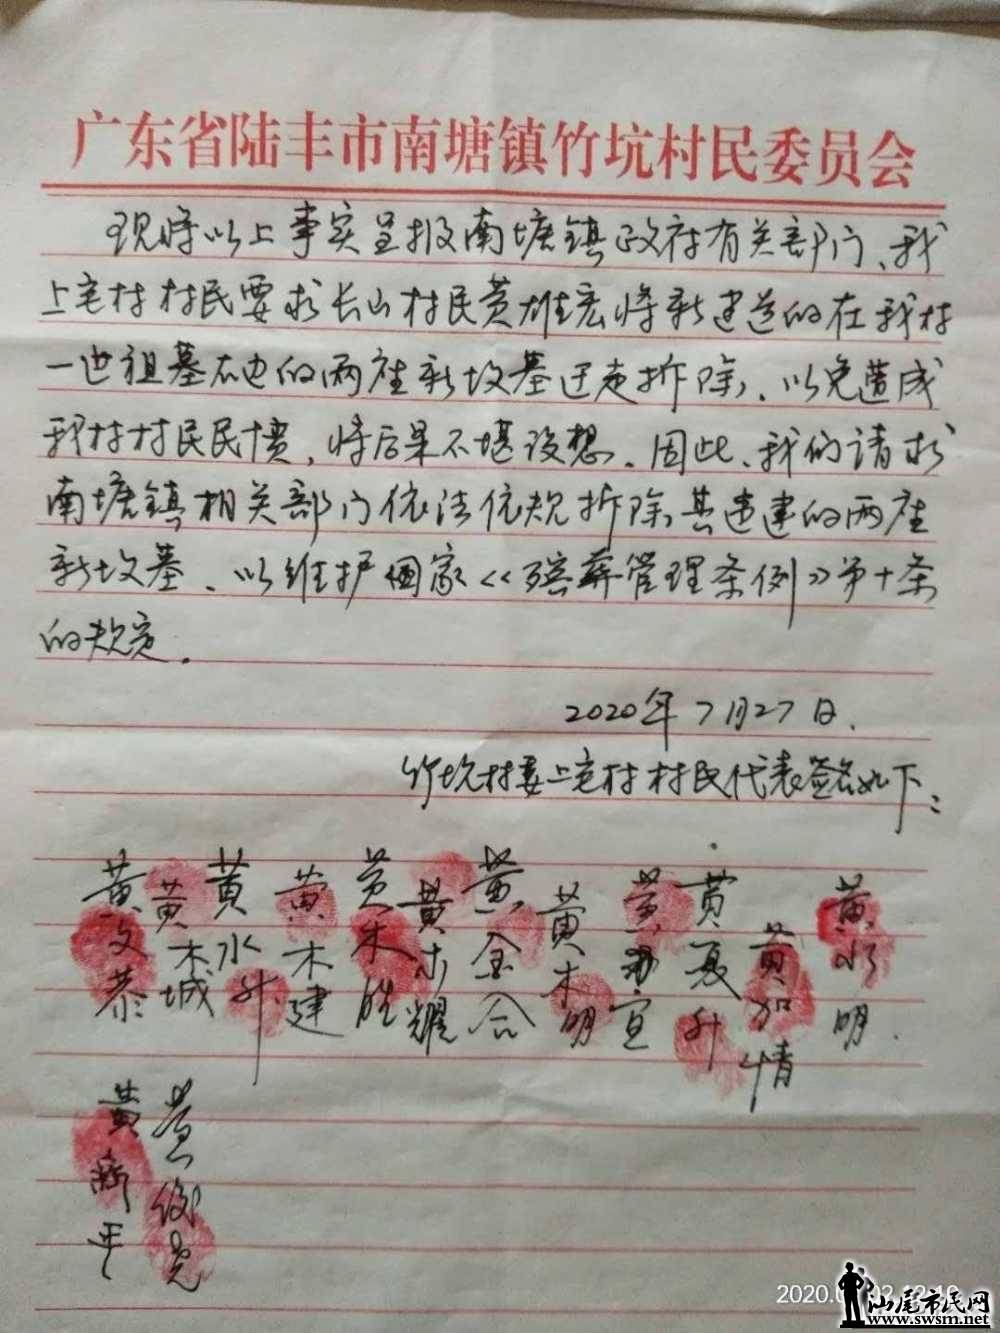 广东省陆丰市南塘镇竹坑村民委员会
现将以上事实呈报南塘镇政府有关部门、我
上宅村村民要求长山村民黄雄宏将新建造的在我村
一世祖墓右边的两座新坟墓迁走拆除、以免造成
我村村民民愤,将后果不堪设想。因此、我们请求
南塘镇相关部门依法依规拆除其违建的两座
新坟墓、以维护国家《殡葬管理条例》第十条
的规定。
2020年7月27日.
竹坑村委上宅村村民代表签名如下:
黄文恭
黄木城
黄水升
黄木建
黄木胜
黄木耀
黄金合
黄木明
黄 宣
黄夏升
黄加情
黄水明.
黄新平
黄俊光
2020.
12:10
汕尾市民网
www.swsm.net